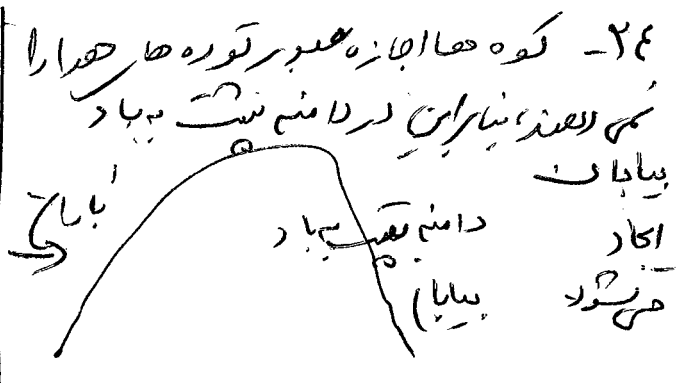 ۲۴- کوه ها اجازه عبور توده های هوا را
نمی دهند، بنابراین در دامنه پشت به باد
بیابان
ایجاد
می شود
باران
دامنه پشت به باد
بیابان